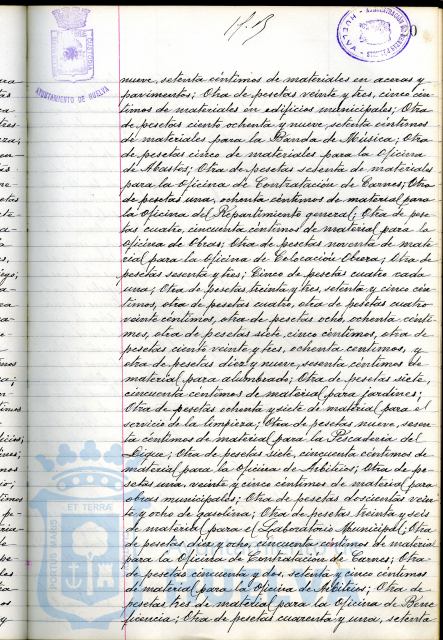 AYUNTAMIENTO DE HUELVA
nueve, setenta céntimos de materiales en aceras y
pavimentos; Otra de pesetas veinte y tres, cinco cén-
timos de materiales en edificios municipales; Otra
de pesetas ciento ochenta y nueve, setenta céntimos
de materiales para la Banda de Música; Otra
de pesetas cinco de materiales para la Oficina
de Abastos; Otra de pesetas setenta de materiales
para la Oficina de Contratación de Carnes; Otra
de pesetas una, ochenta céntimos de material para
la Oficina del Repartimiento general; Otra de pese-
tas cuatro, cincuenta céntimos de material para la
oficina de Obras; Otra de pesetas noventa de mate-
rial para la Oficina de Colocación Obrera; Otra de
pesetas sesenta y tres; Cinco de pesetas cuatro cada
una; Otra de pesetas treinta y tres, setenta y cinco cén-
timos, otra de pesetas cuatro, otra de pesetas cuatro
veinte céntimos, otra de pesetas ocho, ochenta cénti-
mos, otra de pesetas siete, cinco céntimos, otra de
pesetas ciento veinte y tres, ochenta centimos, y
otra de pesetas diez y nueve, sesenta céntimos de
material para alumbrado; Otra de pesetas siete,
cincuenta céntimos de material para jardines;
Otra de pesetas ochenta y siete de material para el
servicio de la limpieza; Otra de pesetas nueve, sesen-
ta céntimos de material para la Pescadería del
Lique; Otra de pesetas siete, cincuenta céntimos de
material para la Oficina de Arbitrios; Otra de pe-
setas una, veinte y cinco céntimos de material para
obras municipales; Otra de pesetas doscientas vein-
te y ocho de gasolina; Otra de pesetas treinta y seis
de material para el Laboratorio Municipal; Otra
de pesetas diez y ocho, cincuenta céntimos de material
para la Oficina de Contratación de Carnes; Otra
de pesetas cincuenta y dos, setenta y cinco céntimos
de material para la Oficina de Arbitrios; Otra de
pesetas tres de material para la Oficina de Bene
ficencia; Otra de pesetas cuarenta y una, setenta
PORTUS MARIS ET TERRAE